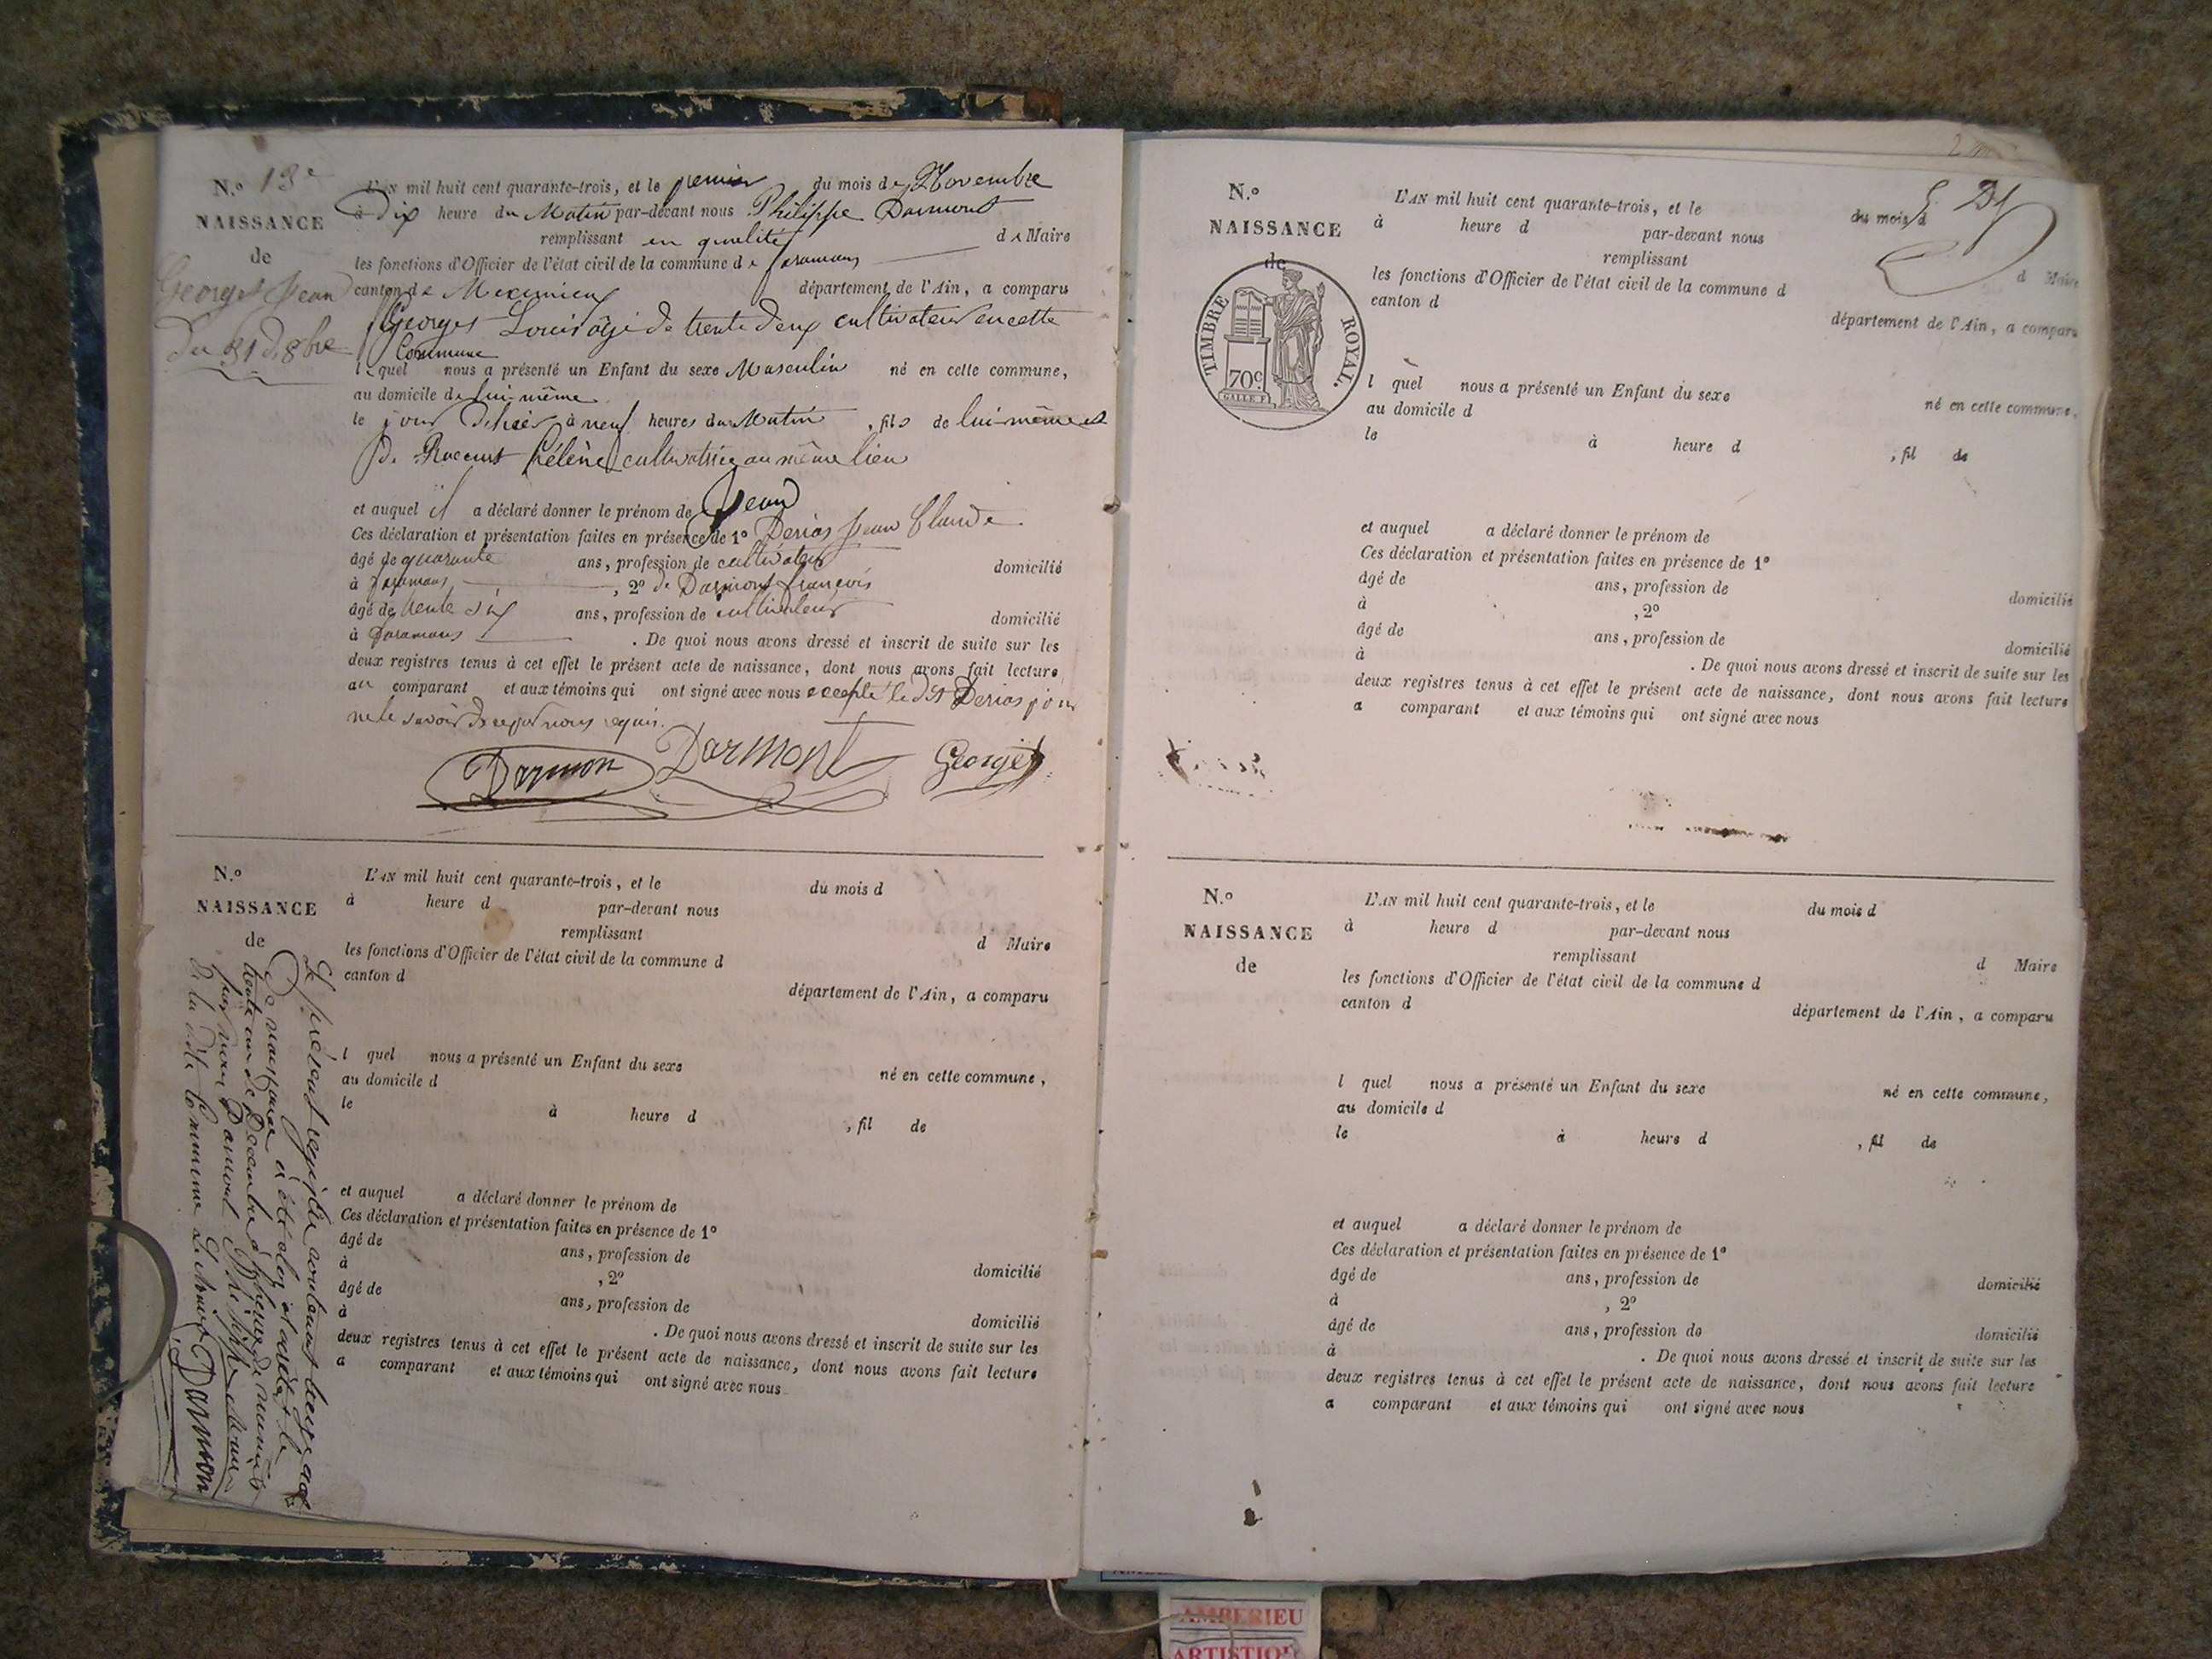 N.° 13e
NAISSANCE
de
Georges Jean
du 31 d 8bre
L'AN mil huit cent quarante-trois, et le premier du mois de Novembre
à Dix heure du Matin par-devant nous Philippe Darmont
remplissant en qualité de Maire
les fonctions d'Officier de l'état civil de la commune de faramans
canton de Meximieux département de l'Ain, a comparu
Georges Louis âgé de trente deux cultivateur en cette
Commune
lequel nous a présenté un Enfant du sexe Masculin né en cette commune,
au domicile de lui-même
le jour d'hier à neuf heures du Matin, fils de lui-même et
de Hélène cultivatrice au même lieu
et auquel il a déclaré donner le prénom de Jean
Ces déclaration et présentation faites en présence de 1° Derias Jean Claude
âgé de quarante ans, profession de cultivateur domicilié
à faramans, 2° de Darmont françois
âgé de trente six ans, profession de cultivateur domicilié
à faramans. De quoi nous avons dressé et inscrit de suite sur les
deux registres tenus à cet effet le présent acte de naissance, dont nous avons fait lecture
au comparant et aux témoins qui ont signé avec nous excepté le dit Derias pour
ne le savoir de ce par nous requis.
Darmon Darmont Georges
N.°
NAISSANCE
de
L'AN mil huit cent quarante-trois, et le du mois d
à heure d par-devant nous
remplissant d Maire
les fonctions d'Officier de l'état civil de la commune d
canton d département de l'Ain, a comparu
l quel nous a présenté un Enfant du sexe né en cette commune,
au domicile d
le à heure d , fil de
et auquel a déclaré donner le prénom de
Ces déclaration et présentation faites en présence de 1°
âgé de ans, profession de domicilié
à , 2°
âgé de ans, profession de domicilié
à . De quoi nous avons dressé et inscrit de suite sur les
deux registres tenus à cet effet le présent acte de naissance, dont nous avons fait lecture
a comparant et aux témoins qui ont signé avec nous
Le présent registre contenant treize actes
de naissance a été clos et arrêté le
trente un de Decembre à heure de
par nous Darmont Philippe Maire
de la dite Commune Le Maire Darmon
N.°
NAISSANCE
de
TIMBRE ROYAL.
70c
L'AN mil huit cent quarante-trois, et le du mois d
à heure d par-devant nous
remplissant d Maire
les fonctions d'Officier de l'état civil de la commune d
canton d département de l'Ain, a comparu
l quel nous a présenté un Enfant du sexe né en cette commune,
au domicile d
le à heure d , fil de
et auquel a déclaré donner le prénom de
Ces déclaration et présentation faites en présence de 1°
âgé de ans, profession de domicilié
à , 2°
âgé de ans, profession de domicilié
à . De quoi nous avons dressé et inscrit de suite sur les
deux registres tenus à cet effet le présent acte de naissance, dont nous avons fait lecture
a comparant et aux témoins qui ont signé avec nous
N.°
NAISSANCE
de
L'AN mil huit cent quarante-trois, et le du mois d
à heure d par-devant nous
remplissant d Maire
les fonctions d'Officier de l'état civil de la commune d
canton d département de l'Ain, a comparu
l quel nous a présenté un Enfant du sexe né en cette commune,
au domicile d
le à heure d , fil de
et auquel a déclaré donner le prénom de
Ces déclaration et présentation faites en présence de 1°
âgé de ans, profession de domicilié
à , 2°
âgé de ans, profession de domicilié
à . De quoi nous avons dressé et inscrit de suite sur les
deux registres tenus à cet effet le présent acte de naissance, dont nous avons fait lecture
a comparant et aux témoins qui ont signé avec nous
AMBERIEU